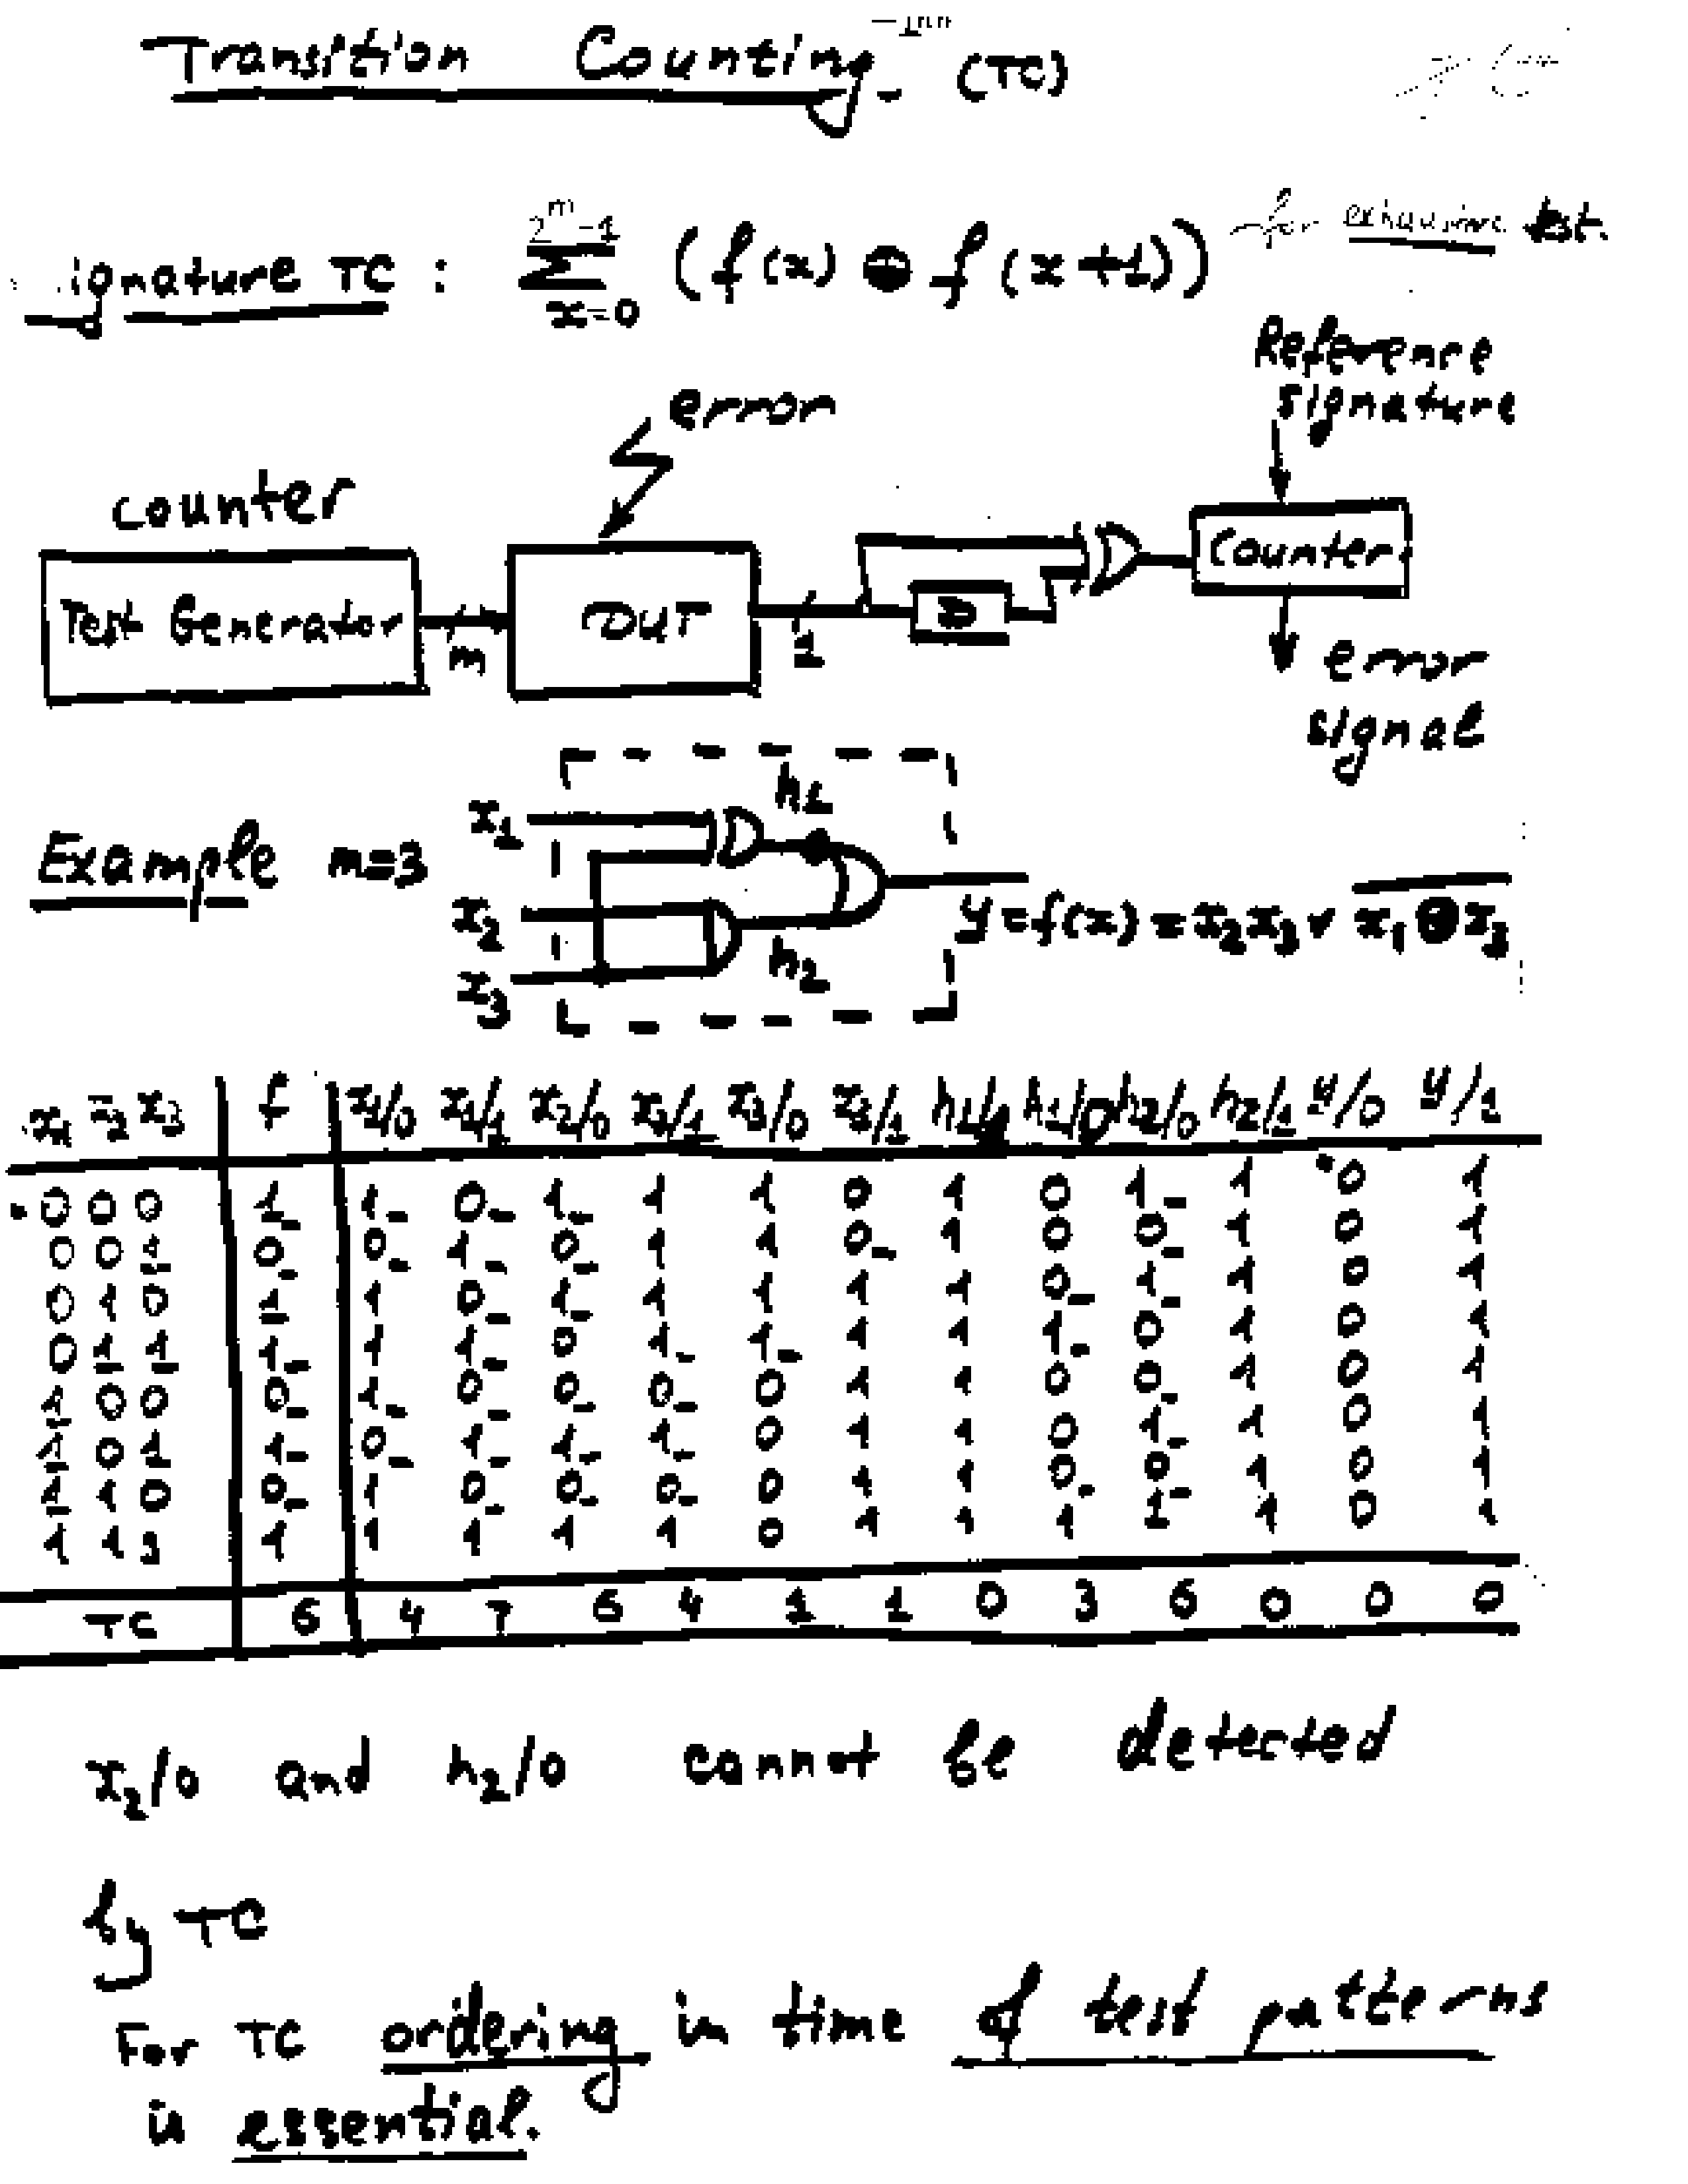 Transition Counting (TC)
ignature TC : 2^m-1 Σ x=0 (f(x) ⊕ f(x+1)) for exhaustive test.
Reference
signature
error
counter
Test Generator m DUT 1 D Counter
error
signal
Example m=3 x1 x2 x3 h1 h2 y=f(x)=x2x3 ∨ \overline{x1⊕x3}
x1 x2 x3 f x1/0 x1/1 x2/0 x2/1 x3/0 x3/1 h1/1 h1/0 h2/0 h2/1 y/0 y/1
0 0 0 1 1 0 1 1 1 0 1 0 1 1 0 1
0 0 1 0 0 1 0 1 1 0 1 0 0 1 0 1
0 1 0 1 1 0 1 1 1 1 1 0 1 1 0 1
0 1 1 1 1 1 0 1 1 1 1 1 0 1 0 1
1 0 0 0 1 0 0 0 0 1 1 0 0 1 0 1
1 0 1 1 0 1 1 1 0 1 1 0 1 1 0 1
1 1 0 0 1 0 0 0 0 1 1 0 0 1 0 1
1 1 1 1 1 1 1 1 0 1 1 1 1 1 0 1
TC 6 4 7 6 4 1 1 0 3 6 0 0 0
x2/0 and h2/0 cannot be detected
by TC
For TC ordering in time of test patterns
is essential.